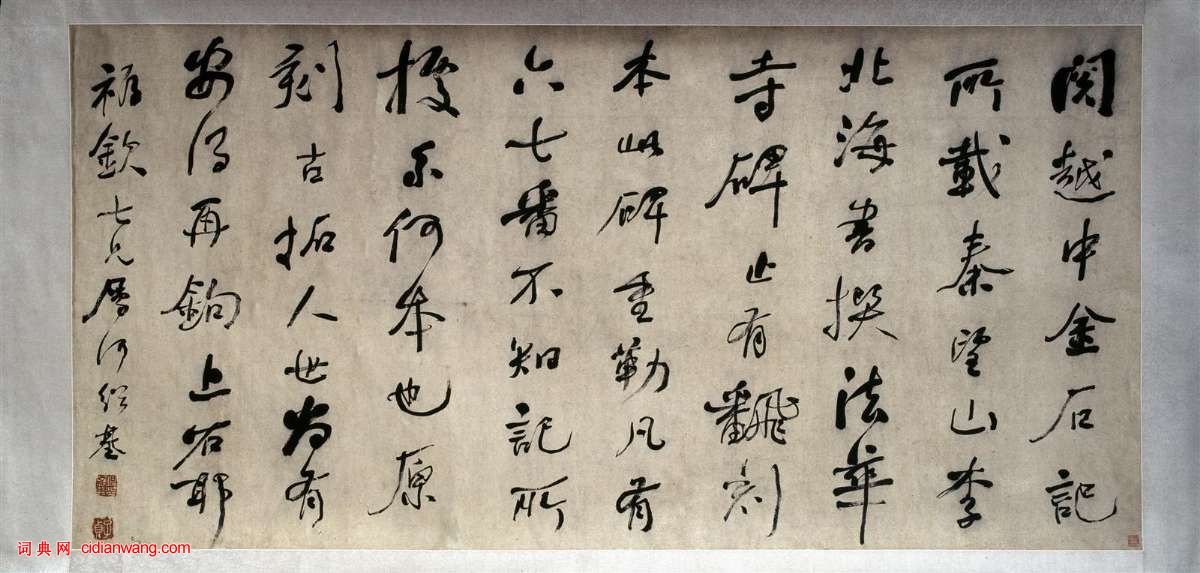 閱越中金石記
所載秦望山李
北海書撰法華
寺碑止有飜刻
本此碑重勒凡有
六七番不知記所
系何本也原
刻古拓人世尚有
安得再鉤上石耶
欽七兄屬何紹基
词典网 cidianwang.com